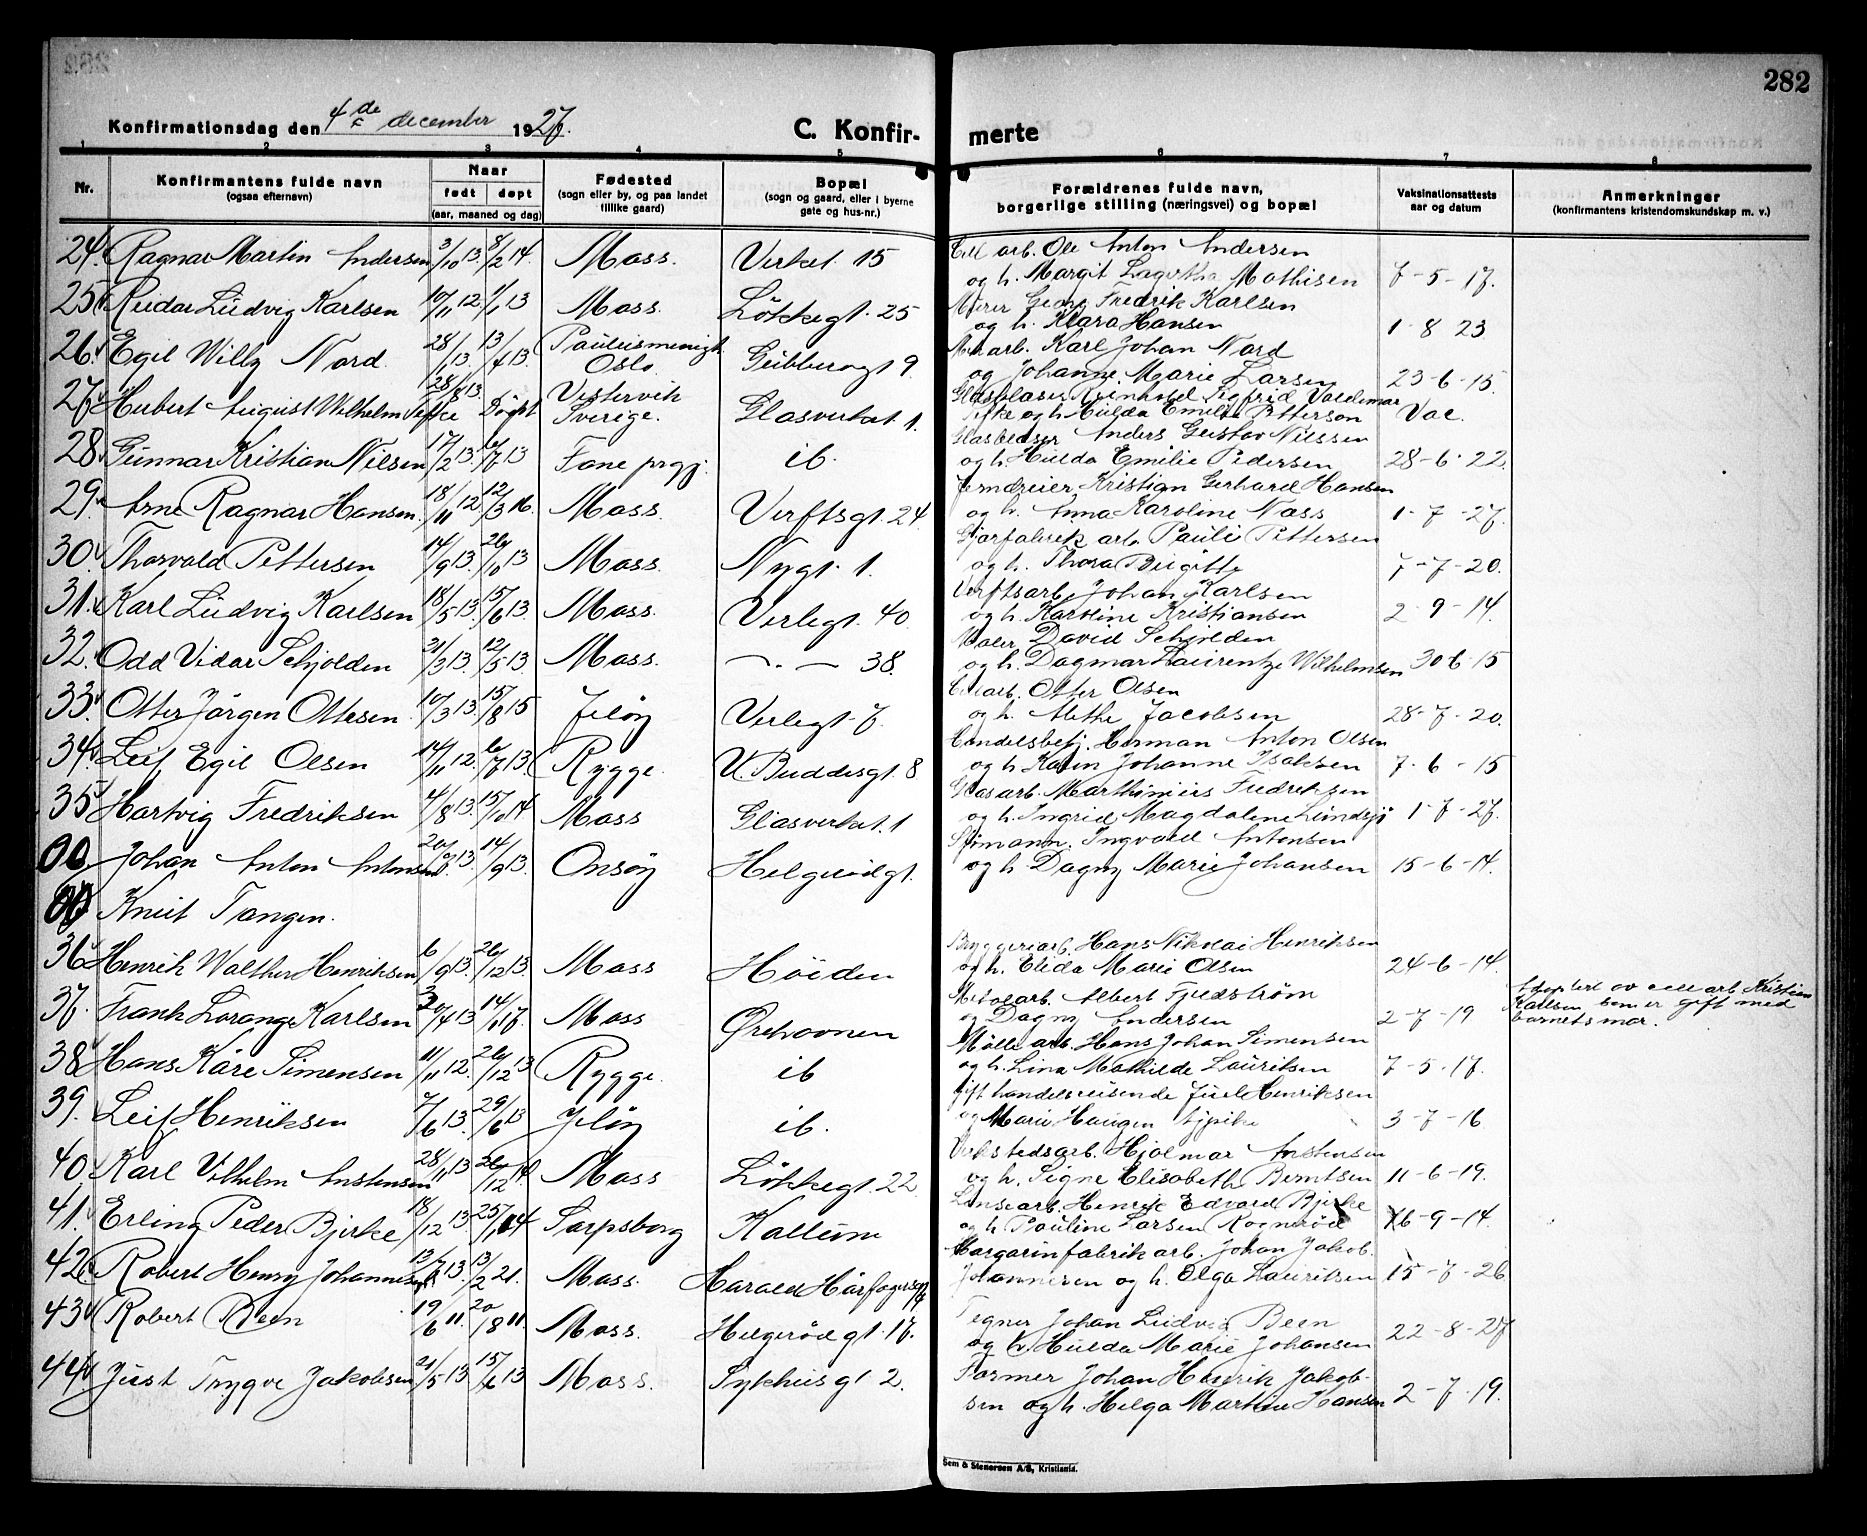 282
Konfirmationsdag den 4de december 1927.
C. Konfir- merte
1 2 3 4 5 6 7 8
Nr.
Konfirmantens fulde navn
(ogsaa efternavn)
Naar
født døpt
(aar, maaned og dag)
Fødested
(sogn eller by, og paa landet
tillike gaard)
Bopæl
(sogn og gaard, eller i byerne
gate og hus-nr.)
Forældrenes fulde navn,
borgerlige stilling (næringsvei) og bopæl
Vaksinationsattests
aar og datum
Anmerkninger
(konfirmantens kristendomskundskap m. v.)
24. Ragnar Martin Andersen 3/10 13. 8/2 14. Moss. Verket 15 arb. Ole Anton Andersen
og h. Margit Lagertha Mathisen 7-5-17.
25. Reidar Ludvig Karlsen 10/11 12. 1/1 13 Moss. Løkkegt. 25 Murer Georg Fredrik Karlsen
og h. Klara Hansen 1-8 23
26. Egil Willy Nord 28/1 13. 13/4 13. Paulusmenigh. Oslo. Gubberogt 9 arb. Karl Johan Nord
og Johanne Marie Larsen 23-6-15.
27. Hubert August Wilhelm Tefke 28/8 13. Døpt Vestervik Sverige. Glasverket 1. Glasblaser Reinhold Sigfrid Valdemar
Tefke og h. Hulda Emilia Petterson Vac.
28. Gunnar Kristian Nilsen 17/2 13. 6/7 13 Fane prgj. ib. Glasblaser Anders Gustav Nilssen
og h. Hulda Emilie Pedersen 28-6-22.
29. Arne Ragnar Hansen. 18/11 12. 12/3 16. Moss. Verftsgt. 24. Jerndreier Kristian Gerhard Hansen
og h. Anna Karoline Næss 1-7-27.
30. Thorvald Pettersen 14/9 13. 26/10 13 Moss. Nygt. 1. Gjærfabrik arb. Pauli Pettersen
og h. Thora Birgitte 7-7-20.
31. Karl Ludvig Karlsen 18/5 13. 15/6 13. Moss. Verlegt. 40. Verftsarb. Johan Karlsen
og h. Karoline Kristiansen 2-9-14.
32. Odd Vidar Schjolden 31/3 13. 12/5 13 Moss. —.— 38. Maler David Schjolden
og h. Dagmar Laurentze Wilhelmsen 30-6-15
33. Otter Jørgen Ottesen. 10/3 13. 15/8 15 Jeløy Verlegt. 7. arb. Otter Olsen
og h. Alethe Jacobsen 28-7-20.
34. Leif Egil Olsen 14/11 12. 6/7 13. Rygge. V. Buddesgt. 8 Handelsbetj. Herman Anton Olsen
og h. Karen Johanne Isaksen 7-6-15
35. Hartvig Fredriksen 4/8 13. 15/10 14 Moss Glasverket. 1 Glasarb. Marthinius Fredriksen
og h. Ingrid Magdalene Lindsjö 1-7-27.
00 Johan Anton Antonsen 20/8 13. 14/9 13. Onsøy Helgerødgt. Stimann. Ingvald Antonsen
og h. Dagny Marie Johansen 15-6-14.
00 Knut Tangen.
36. Henrik Walther Henriksen 6/9 13. 26/12 13. Moss Høiden Bryggeriarb. Hans Nikolai Henriksen
og h. Elida Marie Olsen 24-6-14.
37. Frank Lorang Karlsen 30/4 13 14/1 17. Moss Ørehavnen Metalarb. Albert Fjedstrøm
og Dagny Andersen 2-7-19 Adoptert av arb. Kristian
Karlsen som er gift med
barnets mor.
38. Hans Kåre Simensen 11/11 12. 26/12 13 Rygge. ib Mølle arb. Hans Johan Simensen
og h. Lina Mathilde Lauriksen 7-5-17.
39. Leif Henriksen 7/6 13. 29/6 13 Jeløy ib. gift handelsreisende Juul Henriksen
og Marie Haugen ugpike 3-7-16
40. Karl Vilhelm Anstensen 28/11 13 26/12 14. Moss Løkkegt. 22. Verkstedsarb. Hjalmar Anstensen
og h. Signe Elisabeth Berntsen 11-6-19.
41. Erling Peder Bjerke 18/12 13. 25/1 14 Sarpsborg Kallum Lenseарb. Henrik Edvard Bjerke
og h. Pauline Larsen Rognerød 16-9-14.
42. Robert Henry Johannesen 13/7 13. 13/2 21. Moss. Harald Hårfagersgt Margarinfabrik arb. Johan Jakob
Johannesen og h. Olga Lauritsen 15-7-26
43. Robert Been 19/6 11. 20/8 11. Moss. Helgerødgt. 17. Tegner Johan Ludvig Been
og h. Hulda Marie Johansen 22-8-27
44. Just Trygve Jakobsen 21/5 13 15/6 13 Moss. Sykhusgt 2. Former Johan Henrik Jakob-
sen og h. Helga Martine Hansen 2-7-19.
Sem & Stenersen A/S, Kristiania.